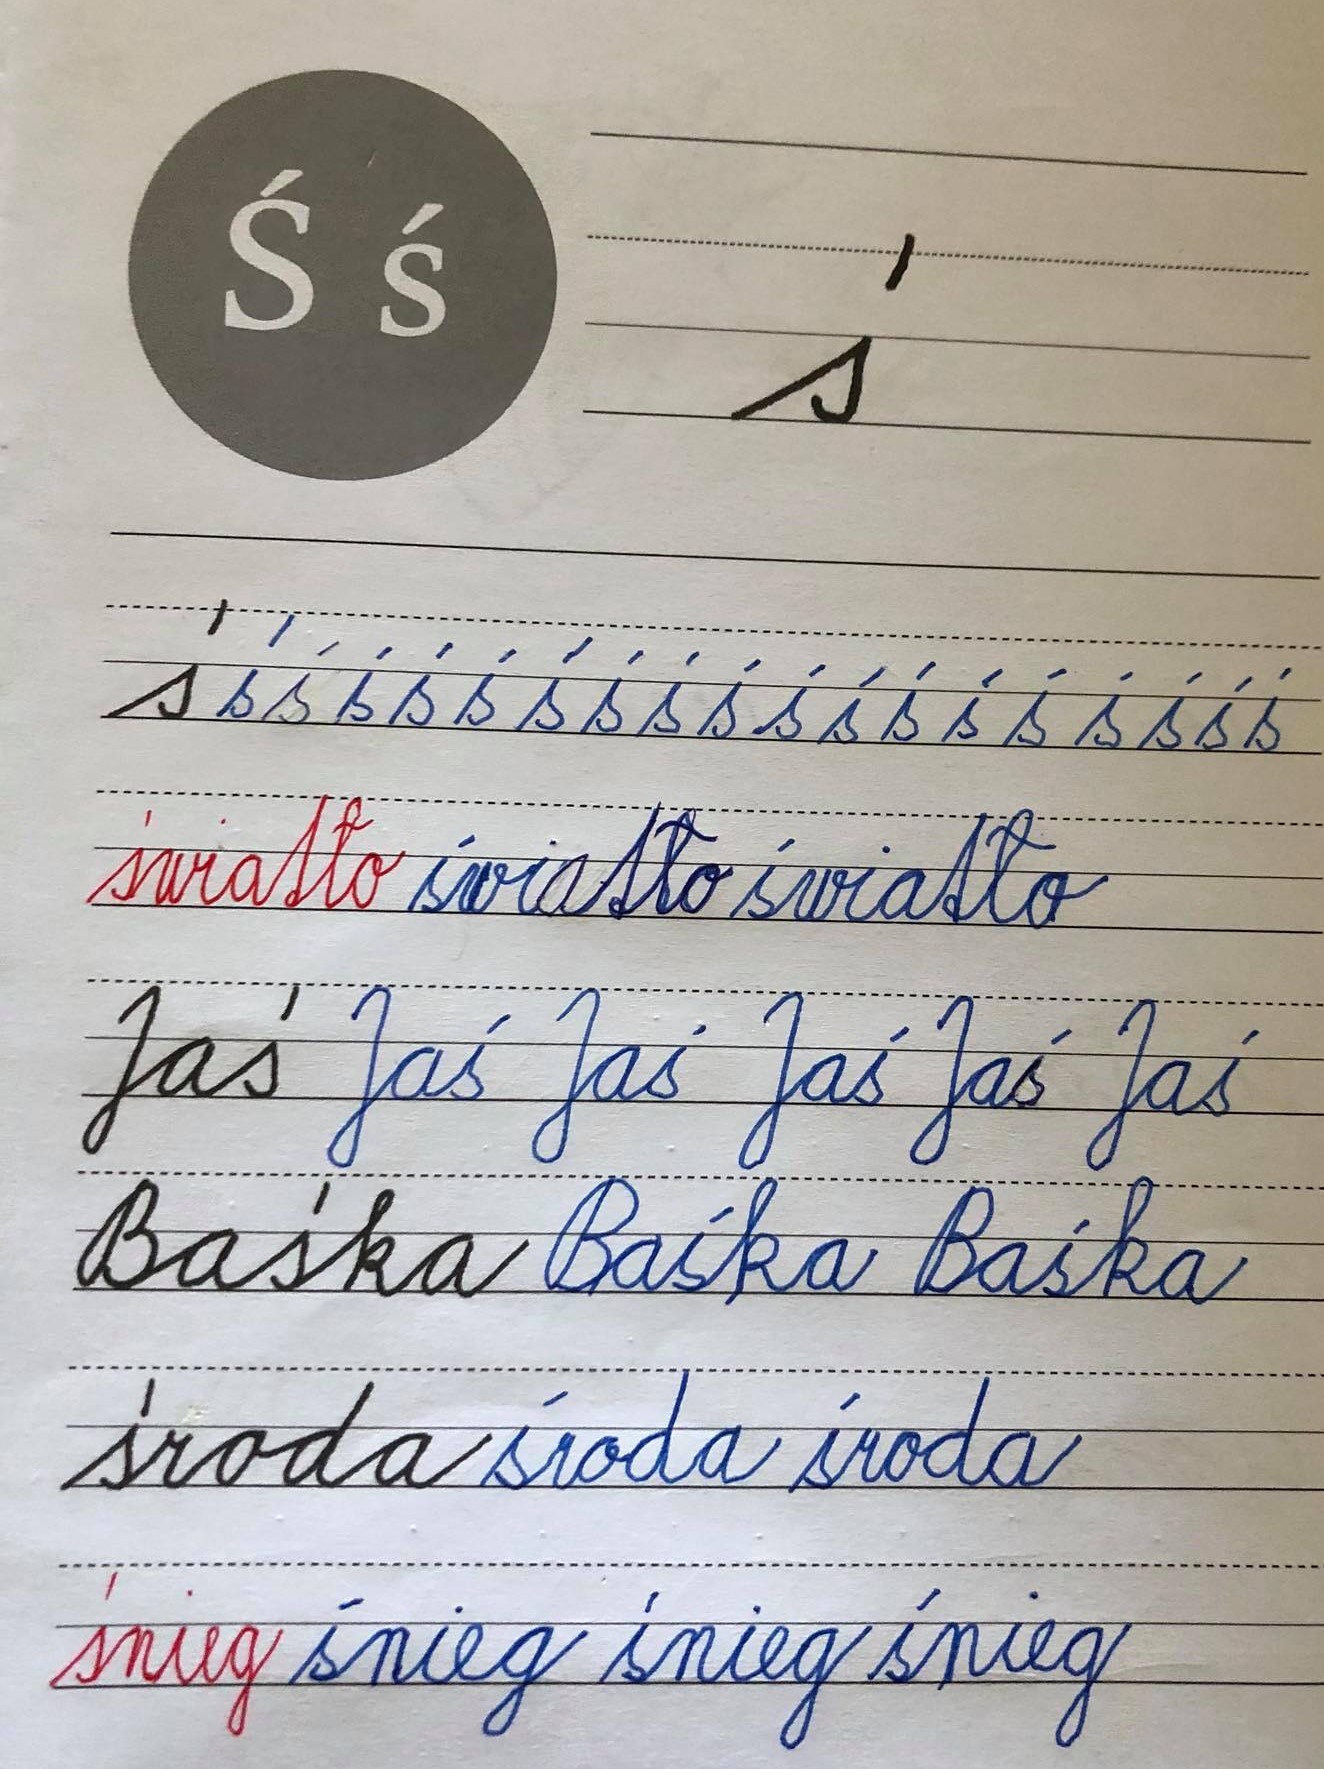 Ś ś
ś
ś ś ś ś ś ś ś ś ś ś ś ś ś ś ś ś ś ś ś
światło światło światło
Jaś Jaś Jaś Jaś Jaś Jaś
Baśka Baśka Baśka
środa środa środa
śnieg śnieg śnieg śnieg